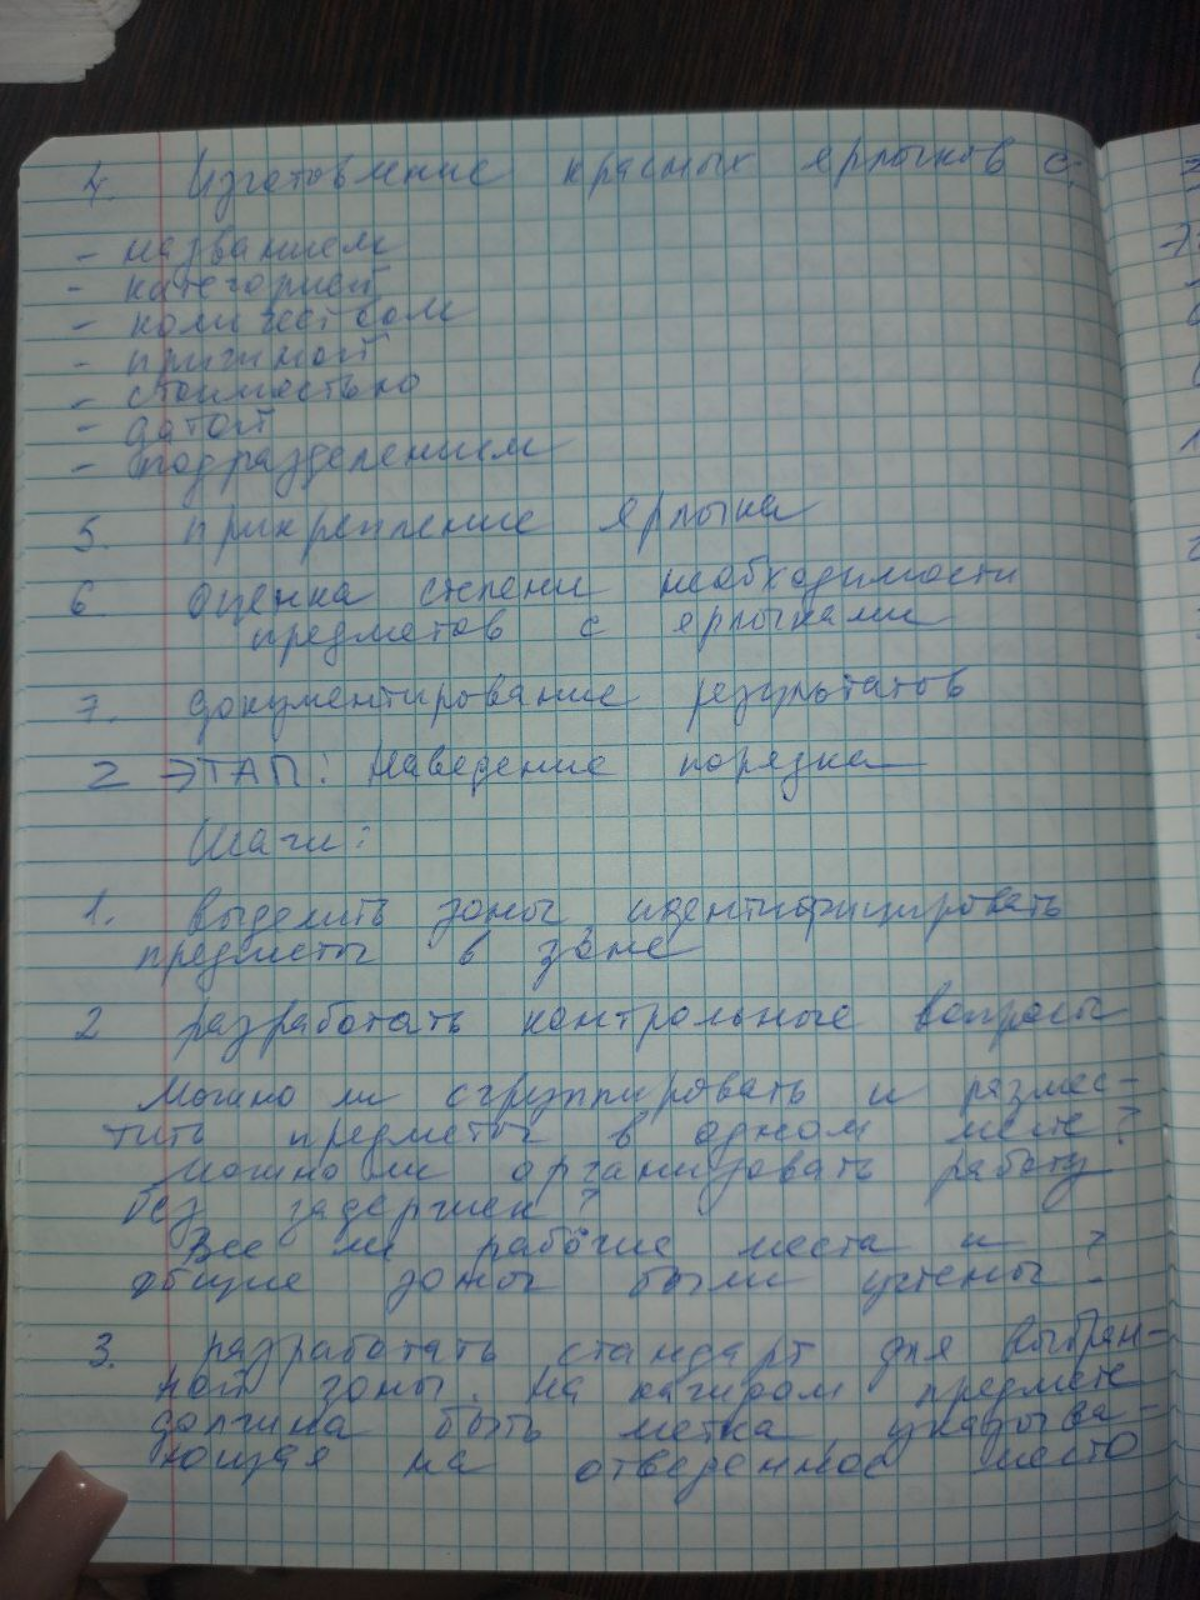 4. Изготовление красных ярлыков с:
- названием
- категорией
- количеством
- причиной
- стоимостью
- датой
- подразделением
5. прикрепление ярлыка
6 оценка степени необходимости
предметов с ярлыками
7. документирование результатов
2 ЭТАП: Наведение порядка
Шаги:
1. выделить зоны, идентифицировать
предметы в зоне
2 разработать контрольные вопросы
Можно ли сгруппировать и размес-
тить предметы в одном месте?
Можно ли организовать работу
без задержек?
Все ли рабочие места и
общие зоны были учтены?
3. разработать стандарт для выбран-
ной зоны. На каждом предмете
должна быть метка, указыва-
ющая на отведенное место